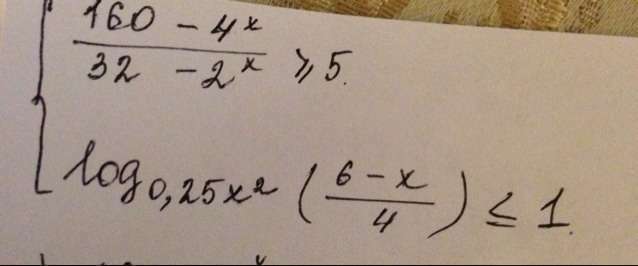 160 - 4ˣ
32 - 2ˣ ⩾ 5.
log₀,₂₅ₓ² (6 - x / 4) ≤ 1.